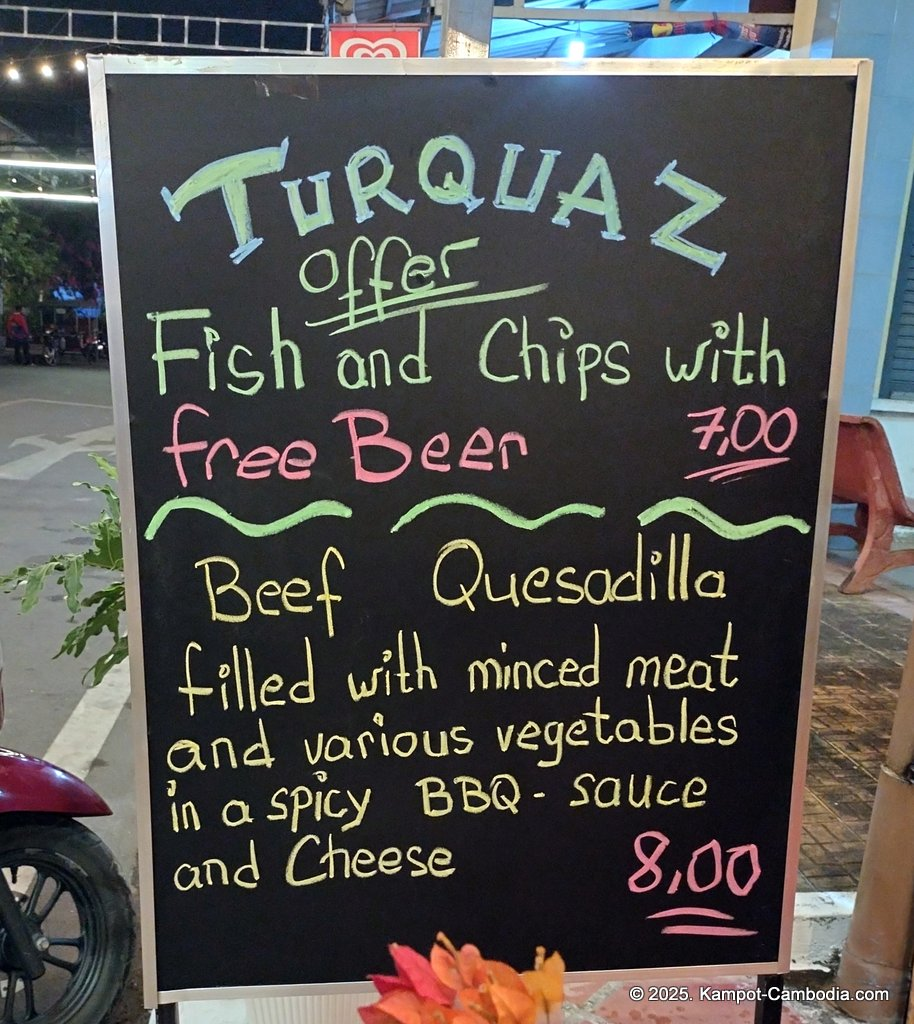 TURQUAZ
offer
Fish and Chips with
free Beer 7,00
Beef Quesadilla
filled with minced meat
and various vegetables
in a spicy BBQ - sauce
and Cheese 8,00
© 2025. Kampot-Cambodia.com